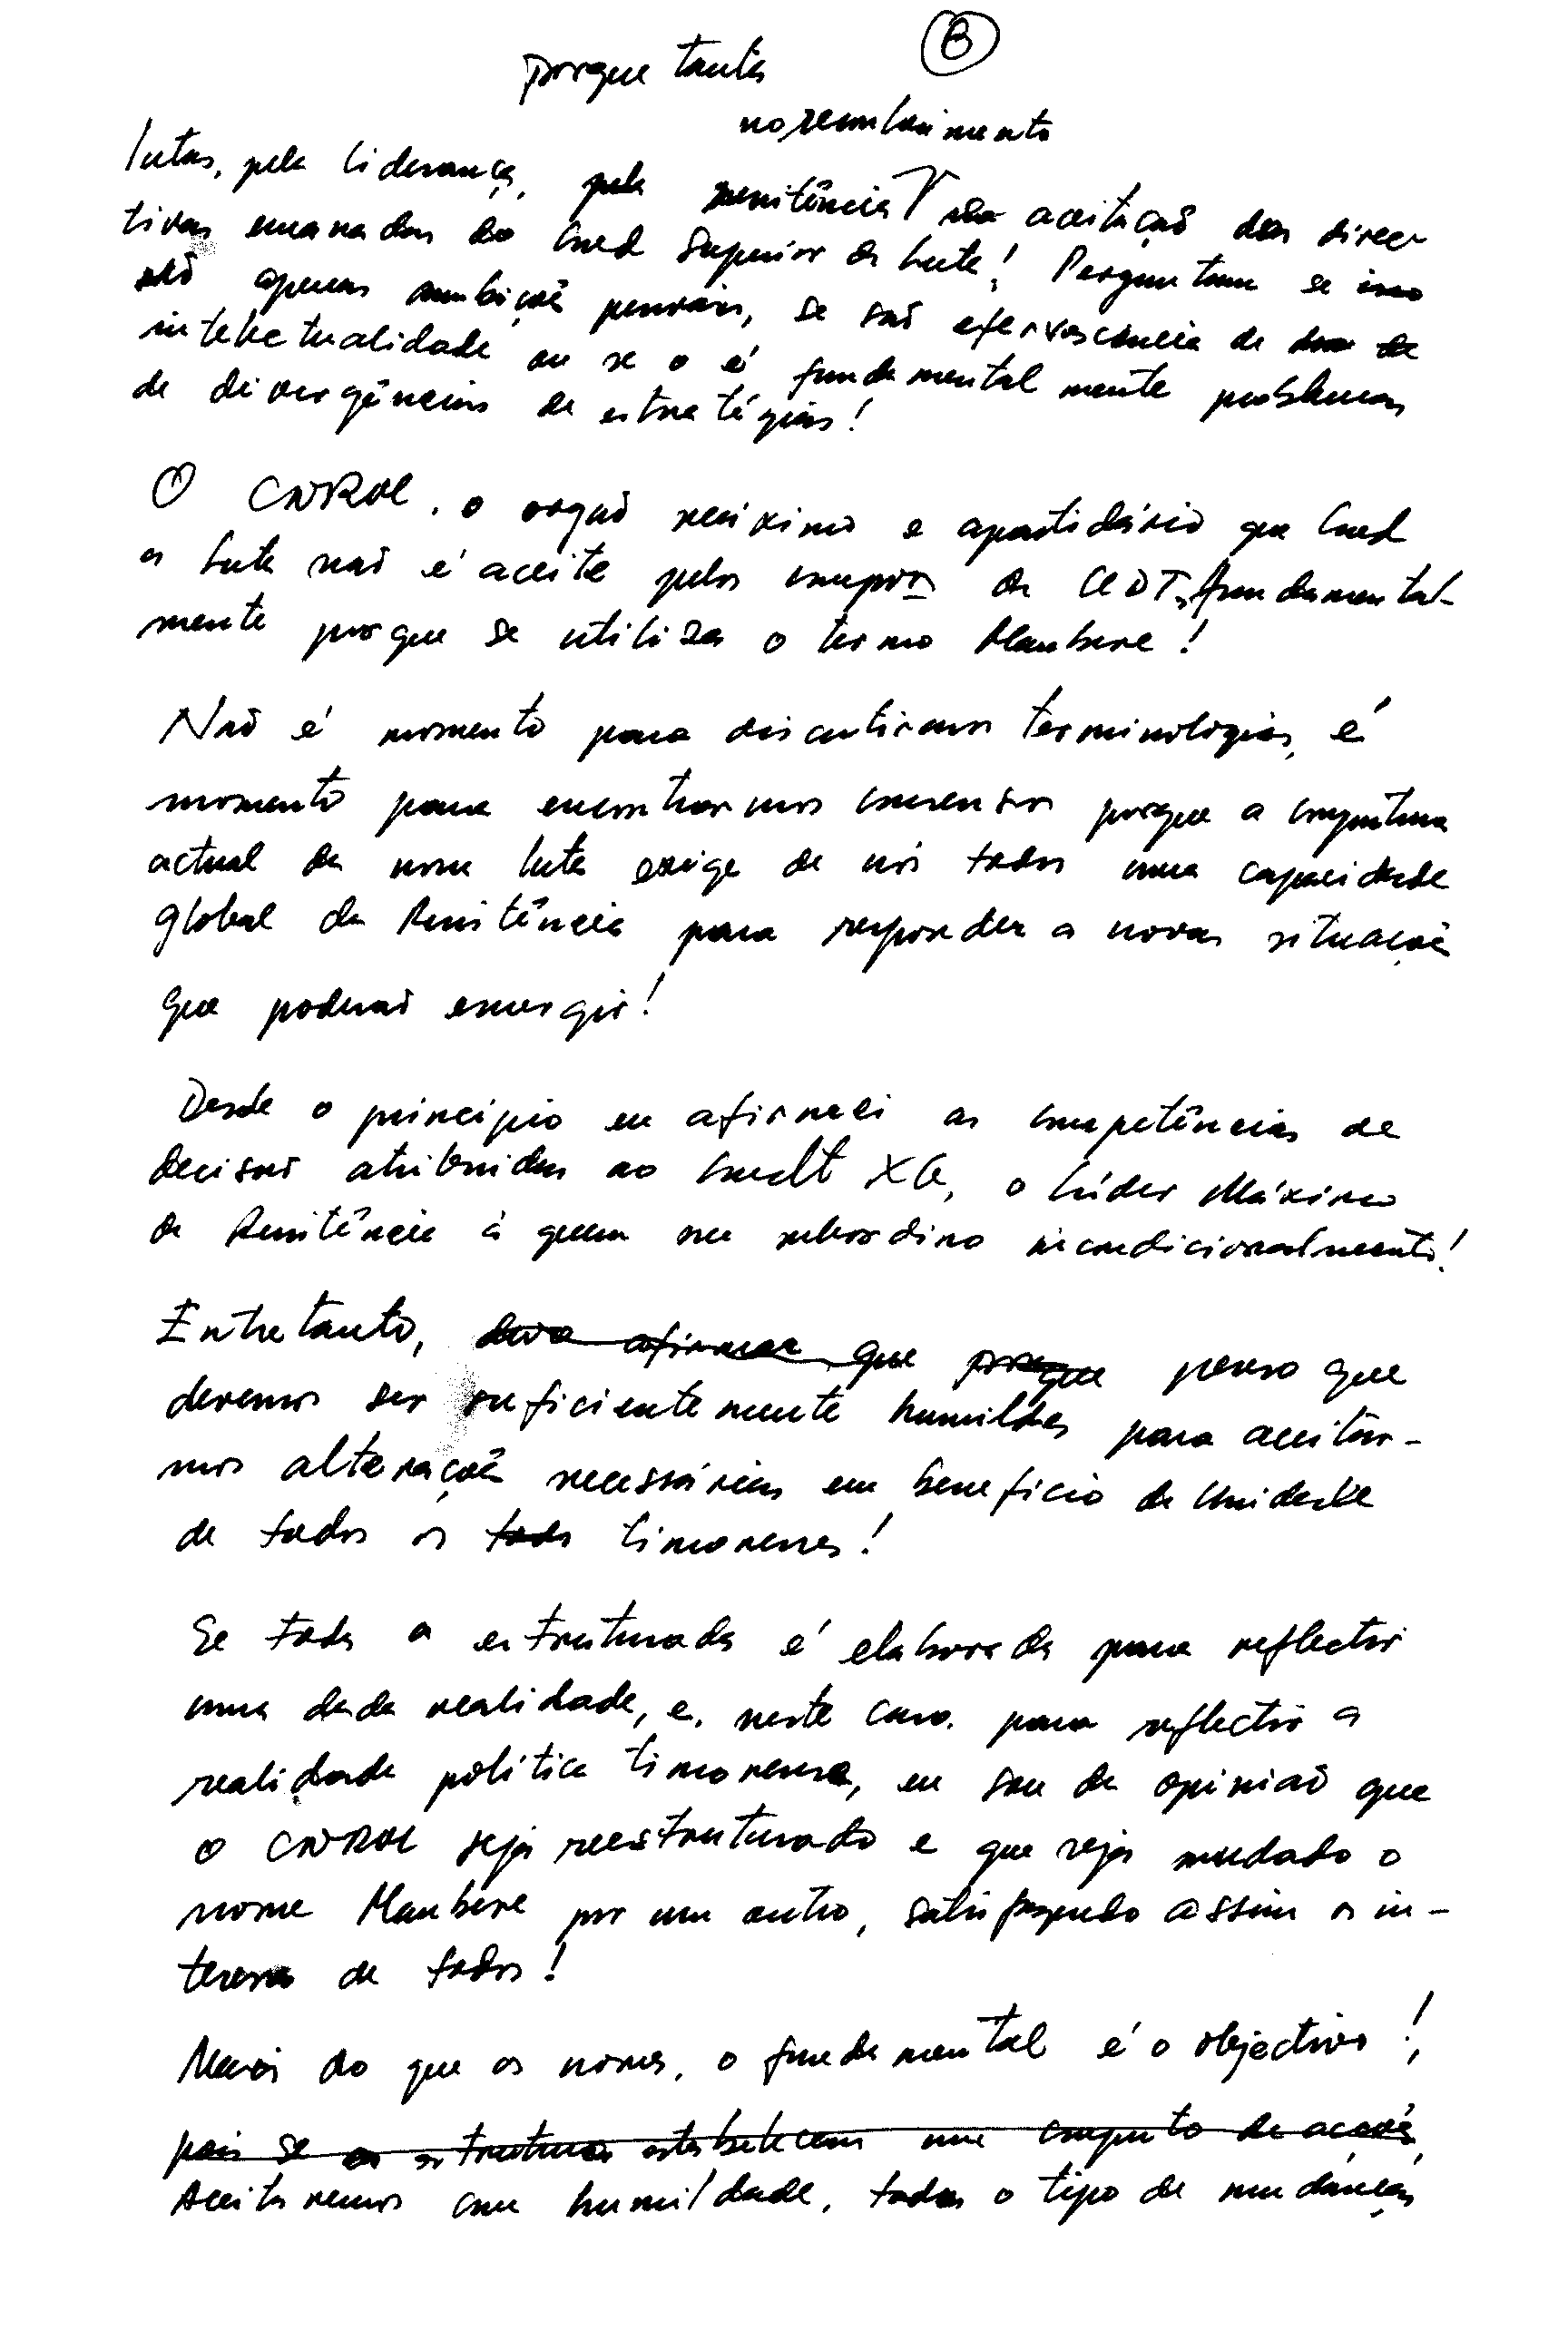 porque tanta
B
no reconhecimento
lutas, pela liderança, pela resistência na aceitação das direc-
tivas emanadas do Cmd Superior da Luta! Perguntam se
são apenas ambições pessoais, se são efervescência de
intelectualidade ou se o é fundamentalmente problemas
de divergências de estratégias!
O CNRM, o orgão máximo e apartidário que Cmd
a Luta não é aceite pelos compos da UDT, fundamental-
mente porque se utiliza o termo Maubere!
Não é momento para discutirmos terminologias, é
momento para encontrarmos consensos porque a conjuntura
actual da nossa luta exige de nós todos uma capacidade
global da Resistência para responder a novas situações
que poderão emergir!
Desde o princípio eu afirmei as competências de
decisão atribuidas ao Cmdt XG, o Líder Máximo
da Resistência à quem me subordino incondicionalmente!
Entretanto, devo afirmar que porque penso que
devemos ser suficientemente humildes para aceitar-
mos alterações necessárias em beneficio da Unidade
de todos os todos timorenses!
Se toda a estruturada é elaborada para reflectir
uma dada realidade, e, neste caso, para reflectir a
realidade política timorense, eu sou da opinião que
o CNRM seja reestruturado e que seja mudado o
nome Maubere por um outro, satisfazendo assim os in-
teresses de todos!
Mais do que os nomes, o fundamental é o objectivo!,
pois se as estruturas estabelecem um conjunto de acções,
Aceitaremos com humildade, todas o tipo de mudanças